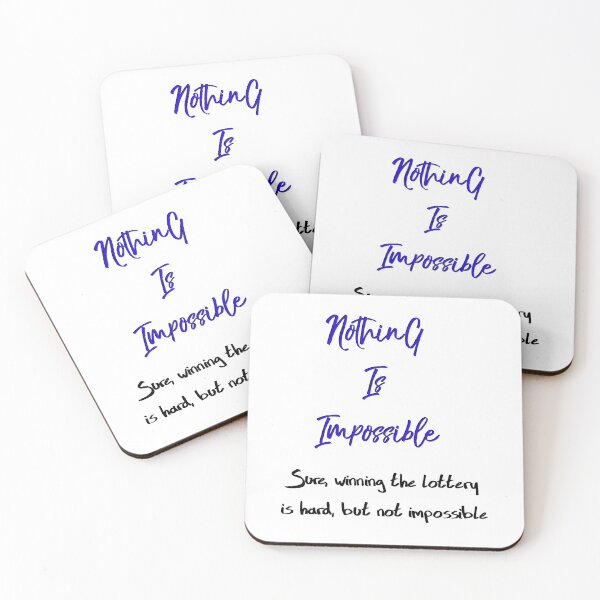 NothinG
Is
NothinG
Is
Impossible
NothinG
Is
Impossible
Sure, winning the
is hard, but not
NothinG
Is
Impossible
Sure, winning the lottery
is hard, but not impossible